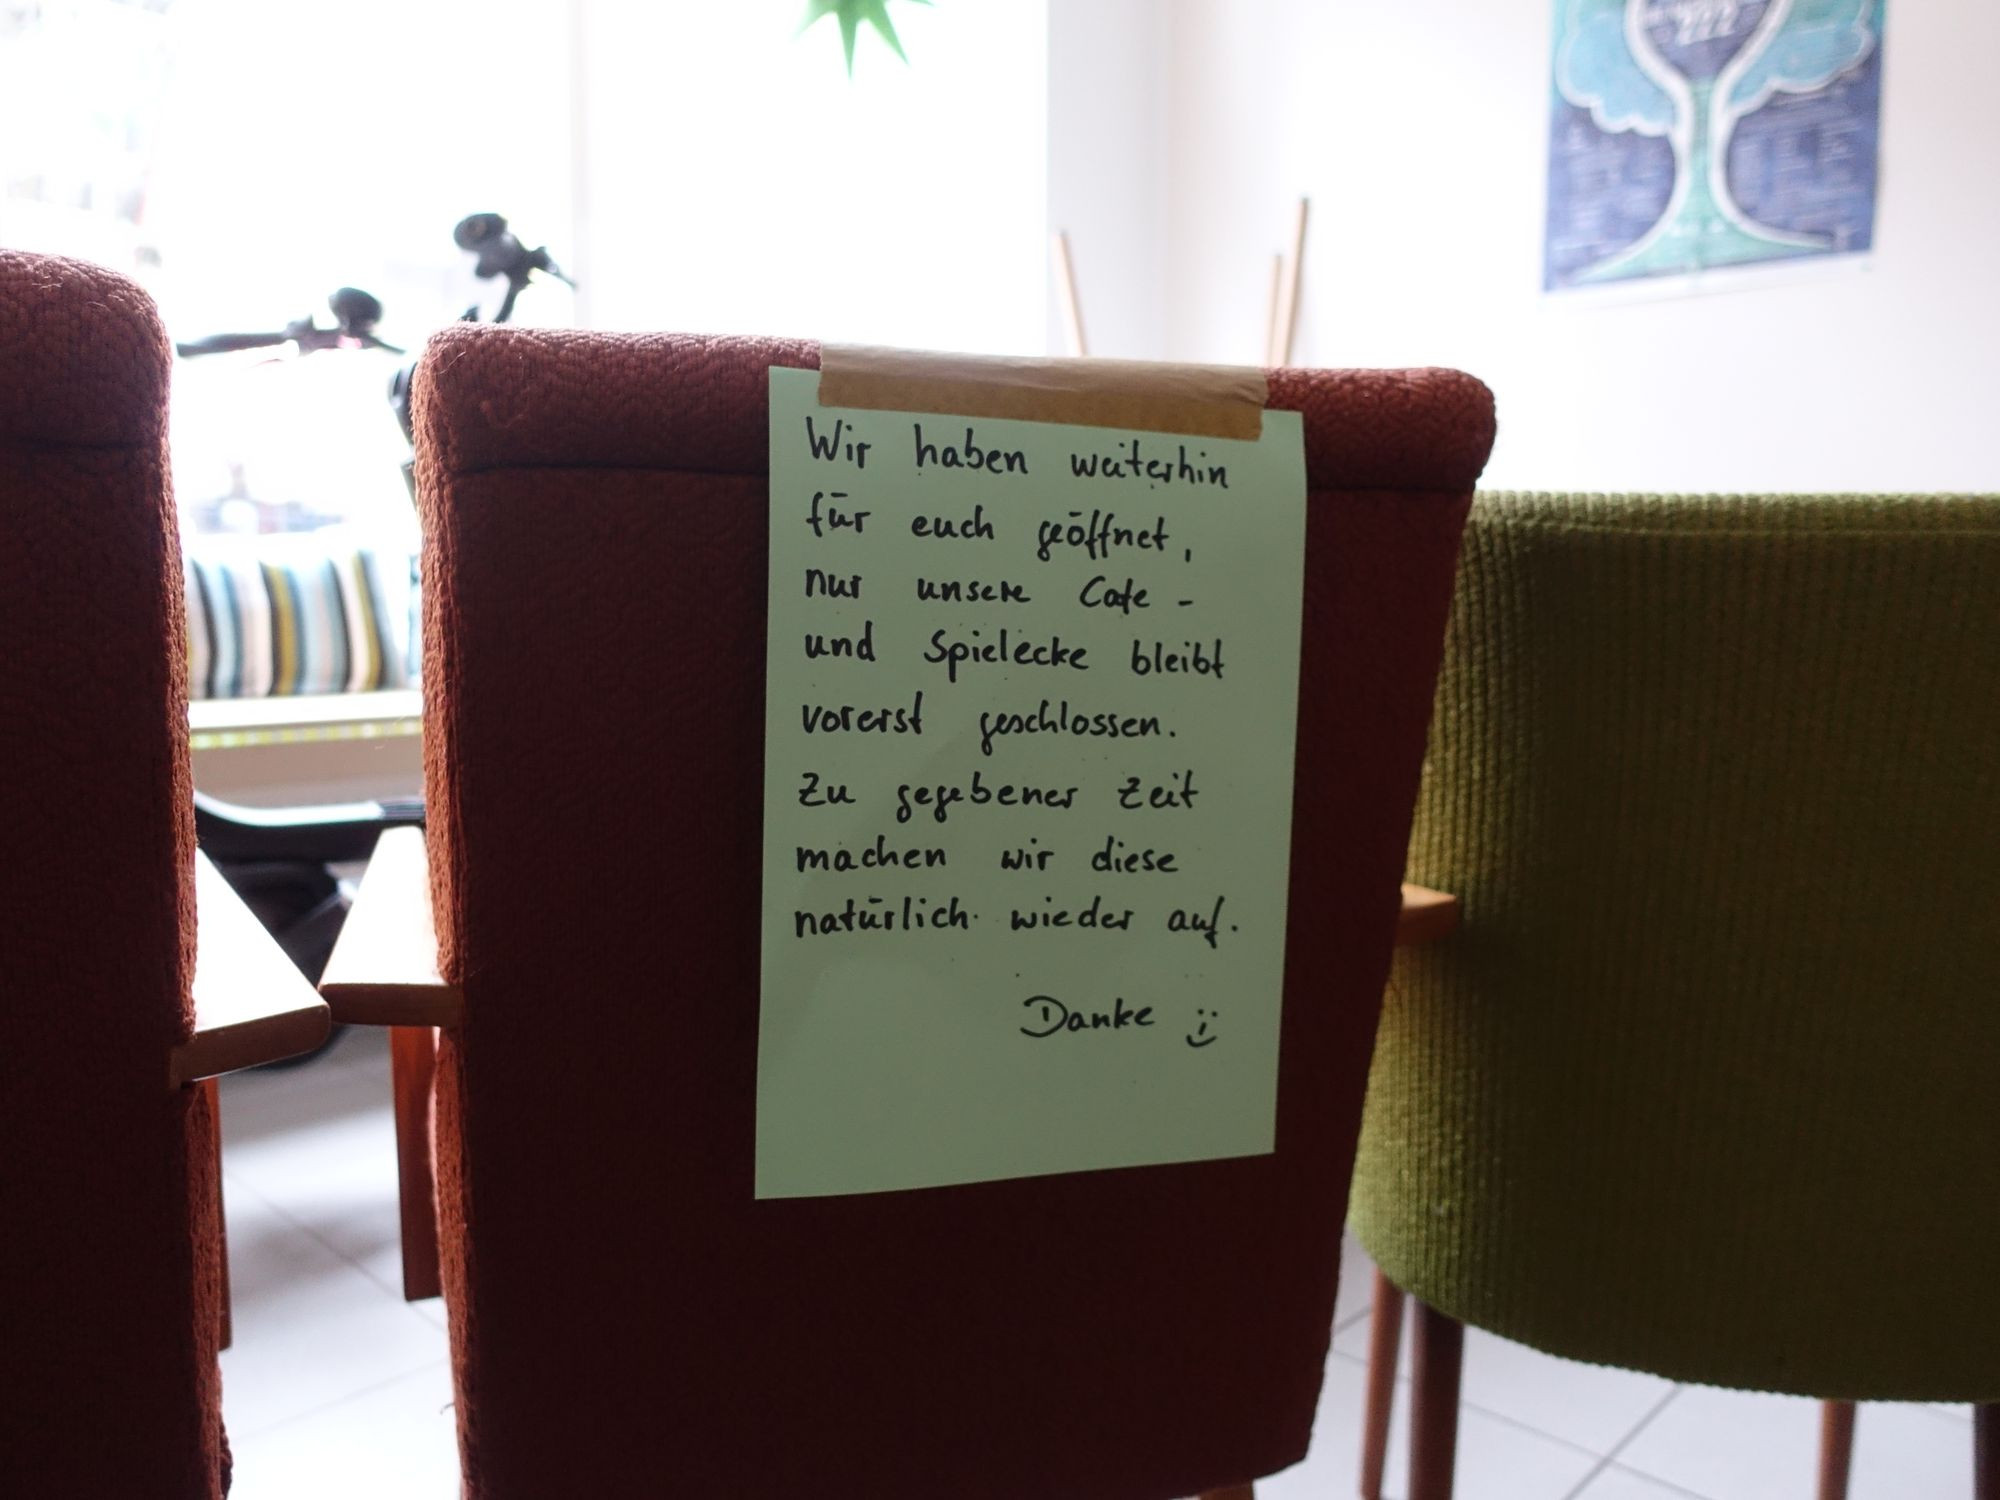 Wir haben weiterhin
für euch geöffnet,
nur unsere Cafe -
und Spielecke bleibt
vorerst geschlossen.
Zu gegebener Zeit
machen wir diese
natürlich wieder auf.
Danke
222